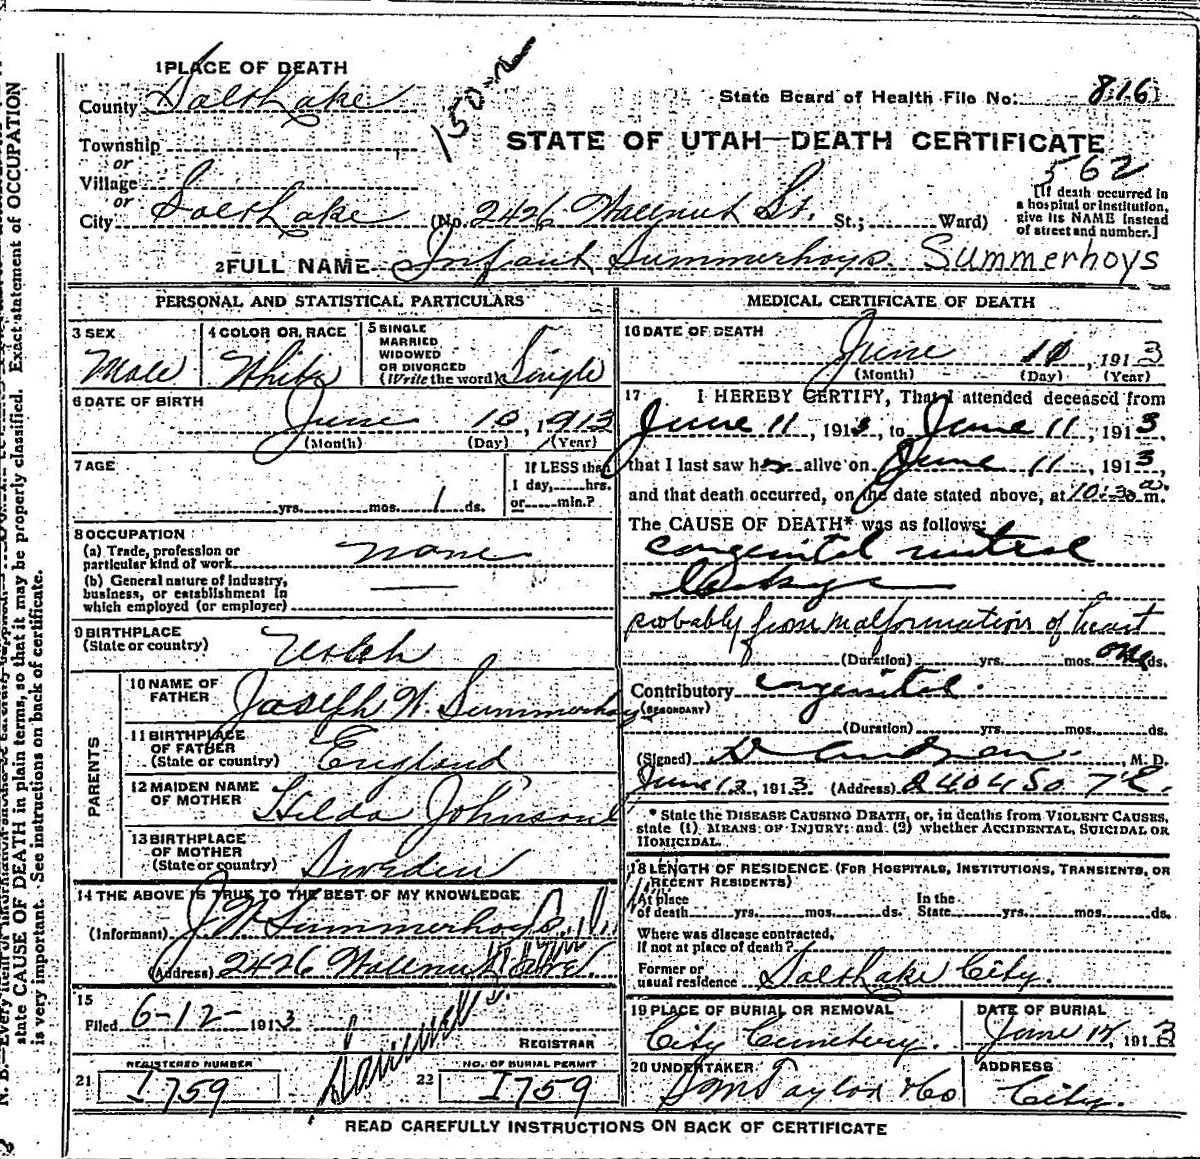 1 PLACE OF DEATH
County Salt Lake
150-
State Board of Health File No. 816
Township
or
Village
or
STATE OF UTAH—DEATH CERTIFICATE
562
[If death occurred in a hospital or institution, give its NAME instead of street and number.]
City Salt Lake (No. 2426 Wallnut St. St.; Ward)
2 FULL NAME Infant Summerhays. Summerhoys
PERSONAL AND STATISTICAL PARTICULARS
3 SEX Male
4 COLOR OR RACE White
5 SINGLE MARRIED WIDOWED OR DIVORCED (Write the word) Single
6 DATE OF BIRTH
June 10, 1913
(Month) (Day) (Year)
7 AGE
yrs. mos. 1 ds.
If LESS than 1 day, hrs. or min.?
8 OCCUPATION
(a) Trade, profession or particular kind of work none
(b) General nature of industry, business, or establishment in which employed (or employer)
9 BIRTHPLACE (State or country) Utah
PARENTS
10 NAME OF FATHER Joseph W. Summerhays
11 BIRTHPLACE OF FATHER (State or country) England
12 MAIDEN NAME OF MOTHER Hilda Johnson
13 BIRTHPLACE OF MOTHER (State or country) Sweden
14 THE ABOVE IS TRUE TO THE BEST OF MY KNOWLEDGE
(Informant) J W Summerhays
(Address) 2426 Wallnut
15
Filed 6-12- 1913
REGISTRAR
REGISTERED NUMBER
21 1759
NO. OF BURIAL PERMIT
22 1759
MEDICAL CERTIFICATE OF DEATH
16 DATE OF DEATH
June 11, 1913
(Month) (Day) (Year)
17 I HEREBY CERTIFY, That I attended deceased from
June 11, 1913, to June 11, 1913,
that I last saw h alive on June 11, 1913,
and that death occurred, on the date stated above, at 10:30 a. m.
The CAUSE OF DEATH* was as follows:
congenital mitral
leakage
probably from malformation of heart
(Duration) yrs. mos. one ds.
Contributory congenital.
(SECONDARY)
(Duration) yrs. mos. ds.
(Signed) M. D.
June 12, 1913 (Address) 2404 So 7 E.
* State the DISEASE CAUSING DEATH, or, in deaths from VIOLENT CAUSES, state (1) MEANS OF INJURY; and (2) whether ACCIDENTAL, SUICIDAL OR HOMICIDAL.
18 LENGTH OF RESIDENCE (FOR HOSPITALS, INSTITUTIONS, TRANSIENTS, OR RECENT RESIDENTS)
At place of death yrs. mos. ds. In the State yrs. mos. ds.
Where was disease contracted, if not at place of death?
Former or usual residence Salt Lake City.
19 PLACE OF BURIAL OR REMOVAL
City Cemetery.
DATE OF BURIAL
June 12, 1913
20 UNDERTAKER
S M Taylor & Co
ADDRESS
City.
READ CAREFULLY INSTRUCTIONS ON BACK OF CERTIFICATE
state CAUSE OF DEATH in plain terms, so that it may be properly classified. Exact statement of OCCUPATION
is very important. See instructions on back of certificate.